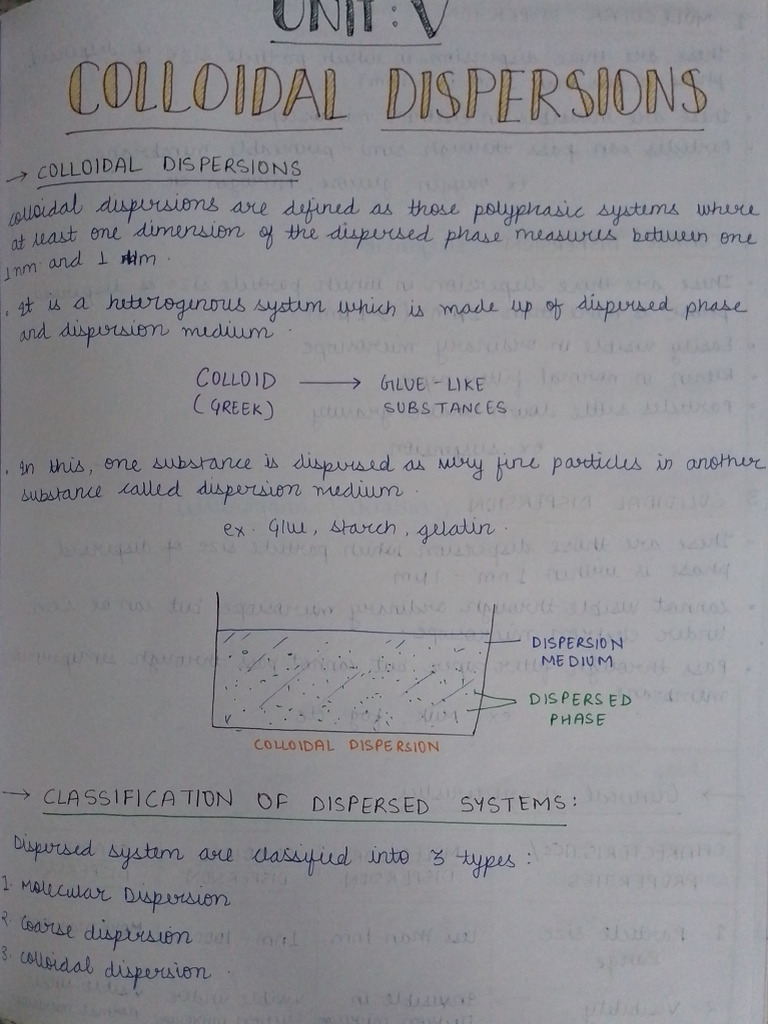 UNIT : V
COLLOIDAL DISPERSIONS
→ COLLOIDAL DISPERSIONS
colloidal dispersions are defined as those polyphasic systems where
at least one dimension of the dispersed phase measures between one
1nm and 1 m.
. It is a heterogenous system which is made up of dispersed phase
and dispersion medium.
COLLOID → GLUE-LIKE
(GREEK) SUBSTANCES
. In this, one substance is dispersed as very fine particles in another
substance called dispersion medium.
ex. Glue, starch, gelatin.
DISPERSION
MEDIUM
DISPERSED
PHASE
COLLOIDAL DISPERSION
→ CLASSIFICATION OF DISPERSED SYSTEMS:
Dispersed system are classified into 3 types:
1. Molecular Dispersion
2. Coarse dispersion
3. colloidal dispersion.